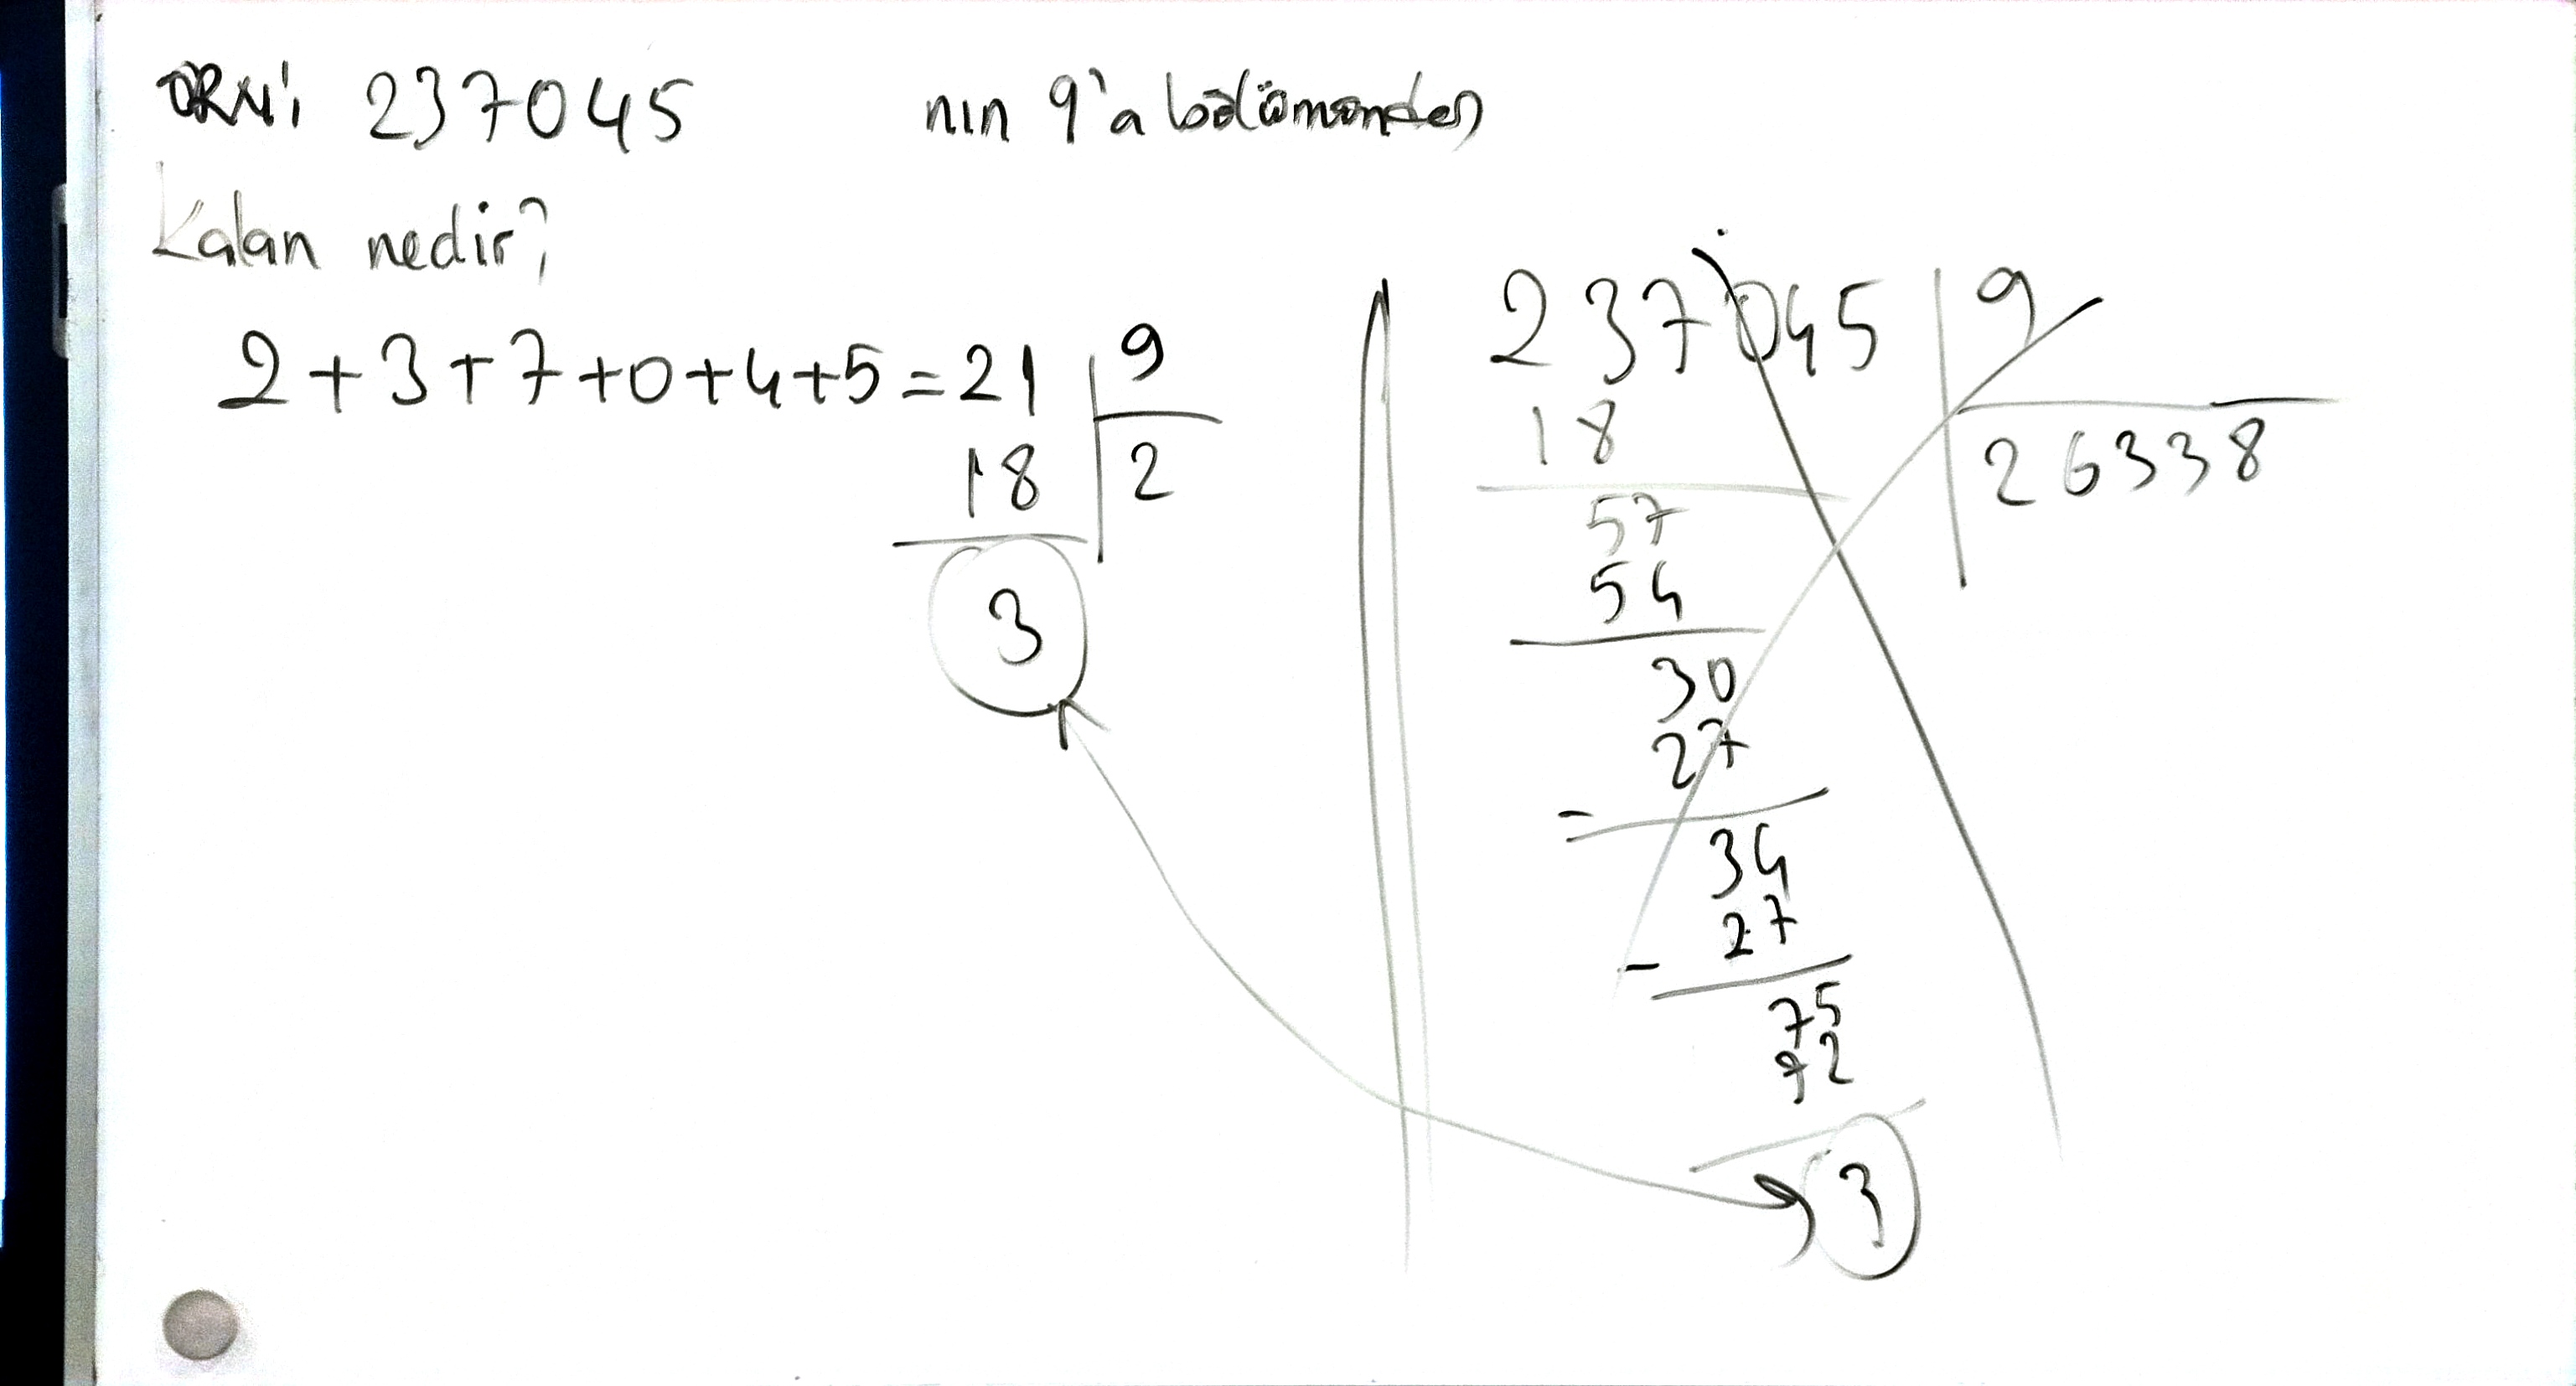 ÖRN: 237045 nın 9'a bölümünden
Kalan nedir?
2+3+7+0+4+5=21 9
18 2
3
237045 9
18 26338
57
54
30
27
=
34
27
-
75
72
3